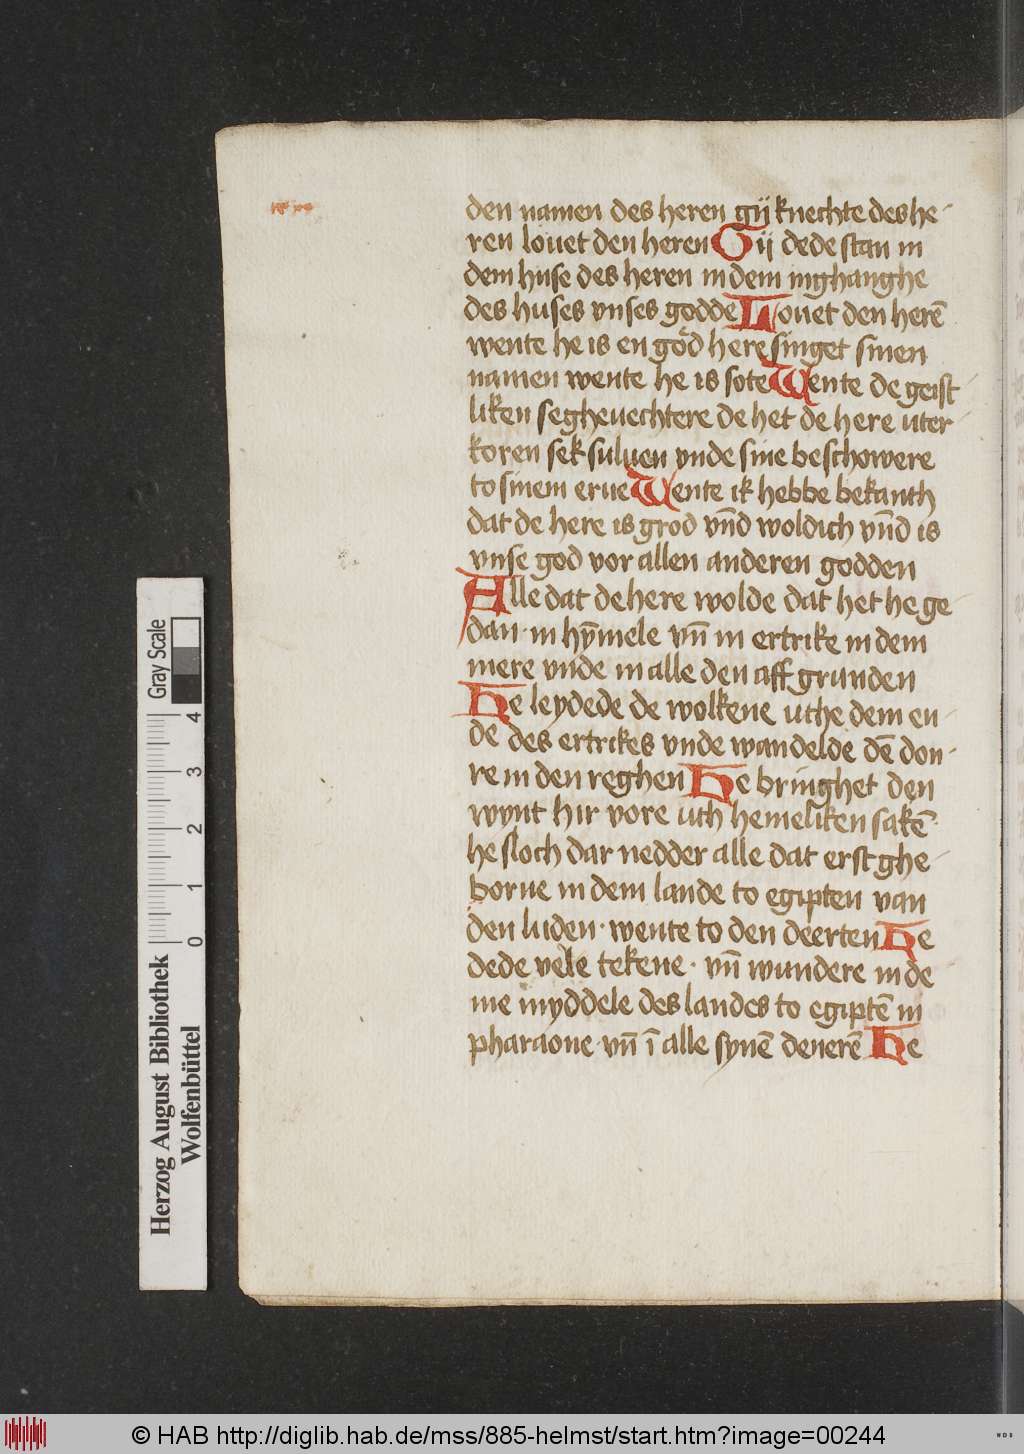 den namen des heren gij knechte des he-
ren louet den heren Gij dede stan in
dem huse des heren in dem inghanghe
des huses vnses godde Louet den herē
wente he is en god here singet sinen
namen wente he is sote Wente de geist-
liken seghevechtere de het de here uter
koren sek suluen vnde sine beschowere
to sinem erue Wente ik hebbe bekanth
dat de here is grod vn̄d woldich vn̄d is
vnse god vor allen anderen godden
Alle dat de here wolde dat het he ge-
dan· in hȳmele vn̄ in ertrike in dem
mere vnde in alle den aff grunden
He leydede de wolkene uthe dem en-
de des ertrikes vnde wandelde dē don-
re in den reghen He bringhet den
wynt hir vore uth hemeliken sakē·
he sloch dar nedder alle dat erst ghe-
borne in dem lande to egipten van
den luden· wente to den deerten He
dede vele tekene· vn̄ wundere in de
me myddele des landes to egiptē in
pharaone·vn̄ ī alle synē denerē He
Herzog August Bibliothek
Wolfenbüttel
0 1 2 3 4
Gray Scale
© HAB http://diglib.hab.de/mss/885-helmst/start.htm?image=00244